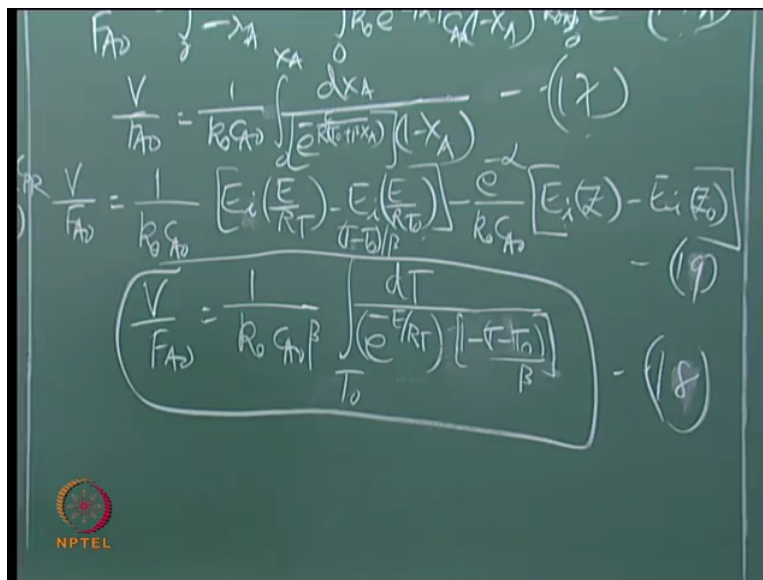 F_A0 -r_A 0 k_0 e C_A0 (1-X_A)
V/F_A0 = 1/(k_0 C_A0) ∫ dX_A / [e^(-E/R(T_0+βX_A))](1-X_A) - (17)
PR V/F_A0 = 1/(k_0 C_A0) [E_i(E/RT) - E_i(E/RT_0)] - e^-α/(k_0 C_A0) [E_i(Z) - E_i(Z_0)]
(T-T_0)/β - (19)
V/F_A0 = 1/(k_0 C_A0 β) ∫_T_0 dT / (e^-E/RT) [1-(T-T_0)/β] - (18)
NPTEL